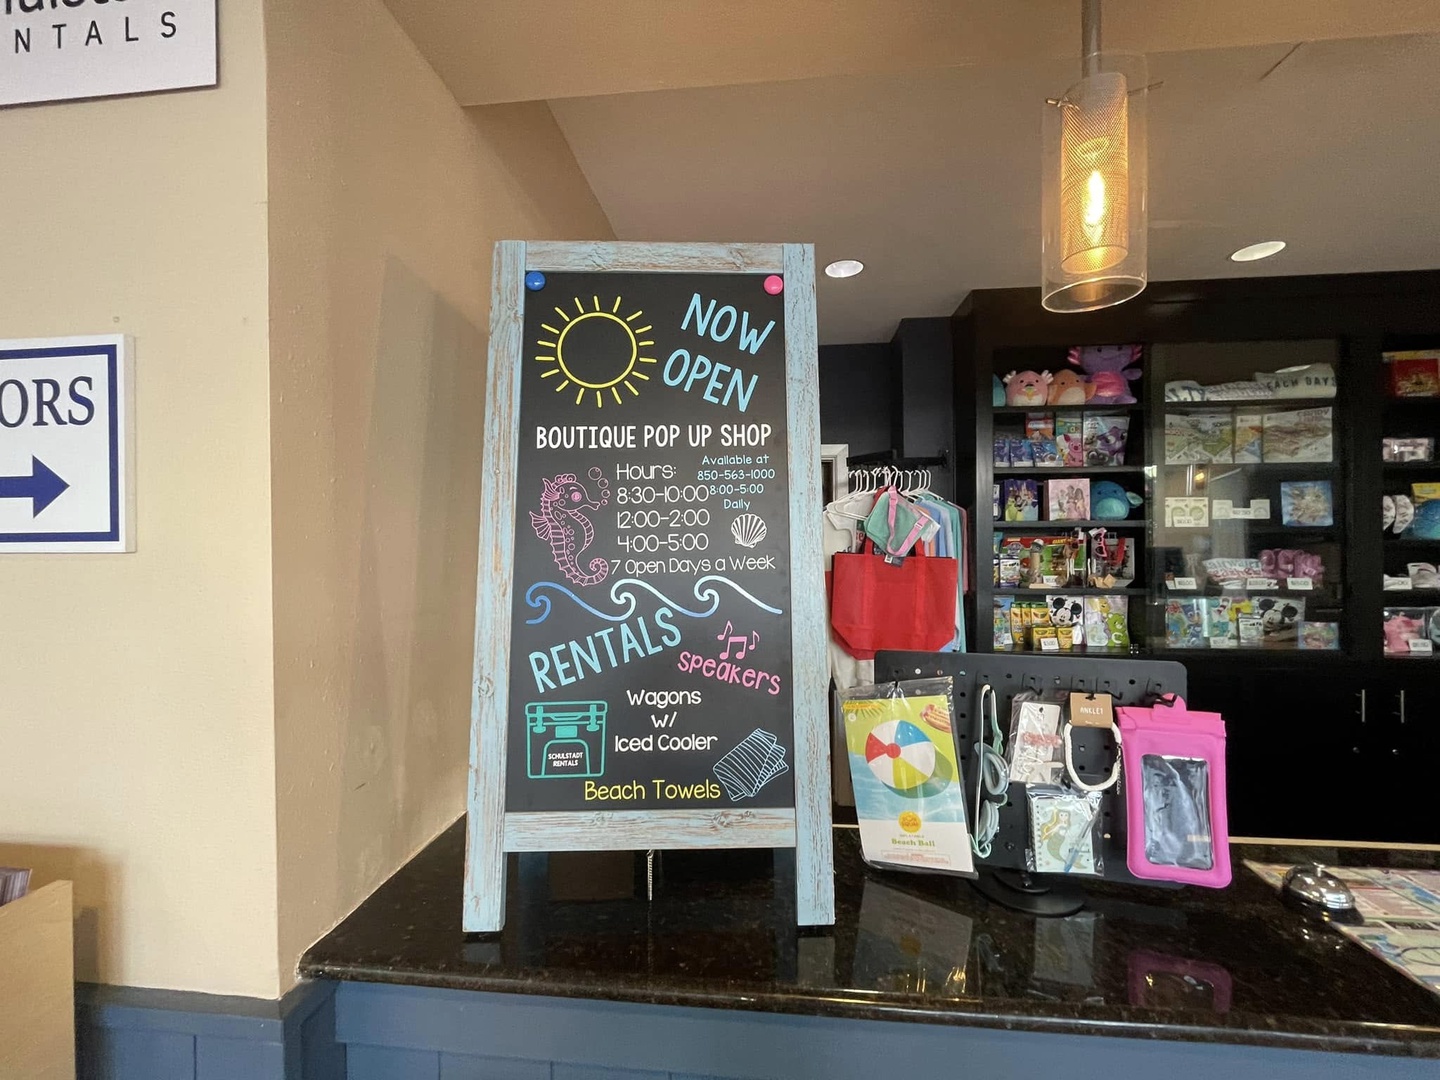 NTALS
ORS
NOW
OPEN
BOUTIQUE POP UP SHOP
Hours:
8:30-10:00
12:00-2:00
4:00-5:00
7 Open Days a Week
Available at
850-563-1000
8:00-5:00
Daily
RENTALS
speakers
Wagons
w/
Iced Cooler
SCHULSTADT
RENTALS
Beach Towels
Beach Ball
ANKLET